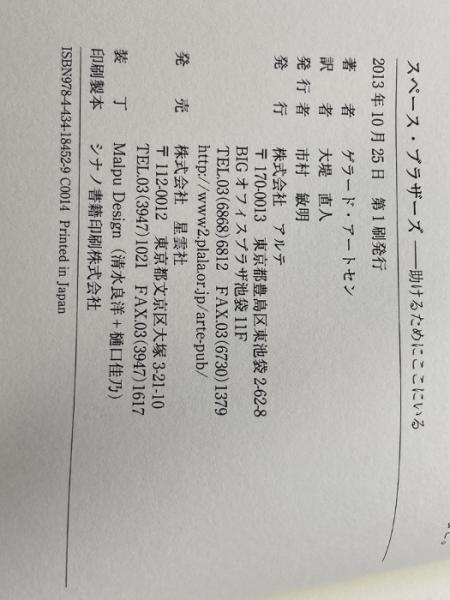 スペース・ブラザーズ ――助けるためにここにいる
2013年10月25日 第1刷発行
著者 ゲラード・アートセン
訳者 大堤 直人
発行者 市村 敏明
発行 株式会社 アルテ
〒170-0013 東京都豊島区東池袋2-62-8
BIGオフィスプラザ池袋11F
TEL.03(6868)6812 FAX.03(6730)1379
http://www2.plala.or.jp/arte-pub/
発売 株式会社 星雲社
〒112-0012 東京都文京区大塚3-21-10
TEL.03(3947)1021 FAX.03(3947)1617
装丁 Malpu Design(清水良洋+樋口佳乃)
印刷製本 シナノ書籍印刷株式会社
ISBN978-4-434-18452-9 C0014 Printed in Japan